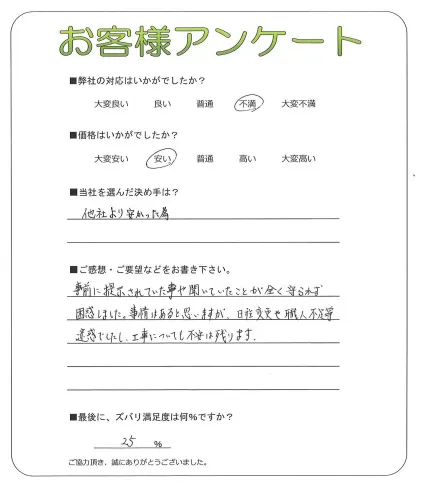 お客様アンケート
■弊社の対応はいかがでしたか?
大変良い 良い 普通 不満 大変不満
■価格はいかがでしたか?
大変安い 安い 普通 高い 大変高い
■当社を選んだ決め手は?
他社より安かった為
■ご感想・ご要望などをお書き下さい。
事前に提示されていた事や聞いていたことが全く守られず
困惑しました。事情はあると思いますが、日程変更や職人不足等
迷惑でしたし、工事についても不安は残ります。
■最後に、ズバリ満足度は何%ですか?
25 %
ご協力頂き、誠にありがとうございました。